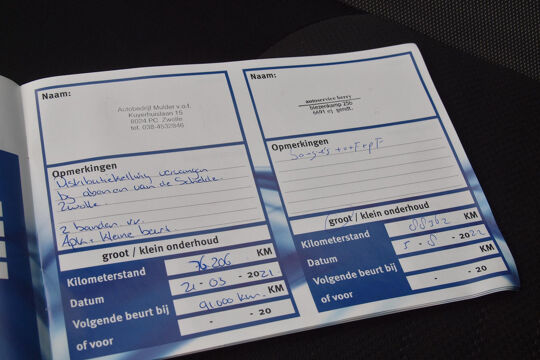 Naam:
Autobedrijf Mulder v.o.f.
Kuyerhuislaan 15
8024 PC Zwolle
tel. 038-4532846
Opmerkingen
Distributieketting vervangen
bij abonan van de Schelde
Zwolle.
2 banden vv.
Apk + kleine beurt.
groot / klein onderhoud
Kilometerstand 76206 KM
Datum 21-03-2021
Volgende beurt bij 91.000 km. KM
of voor - - 20
Naam:
autoservice berry
biezenkamp 25b
6691 vj gendt.
Opmerkingen
groot / klein onderhoud
Kilometerstand 88362 KM
Datum 5-8-2022
Volgende beurt bij KM
of voor - - 20